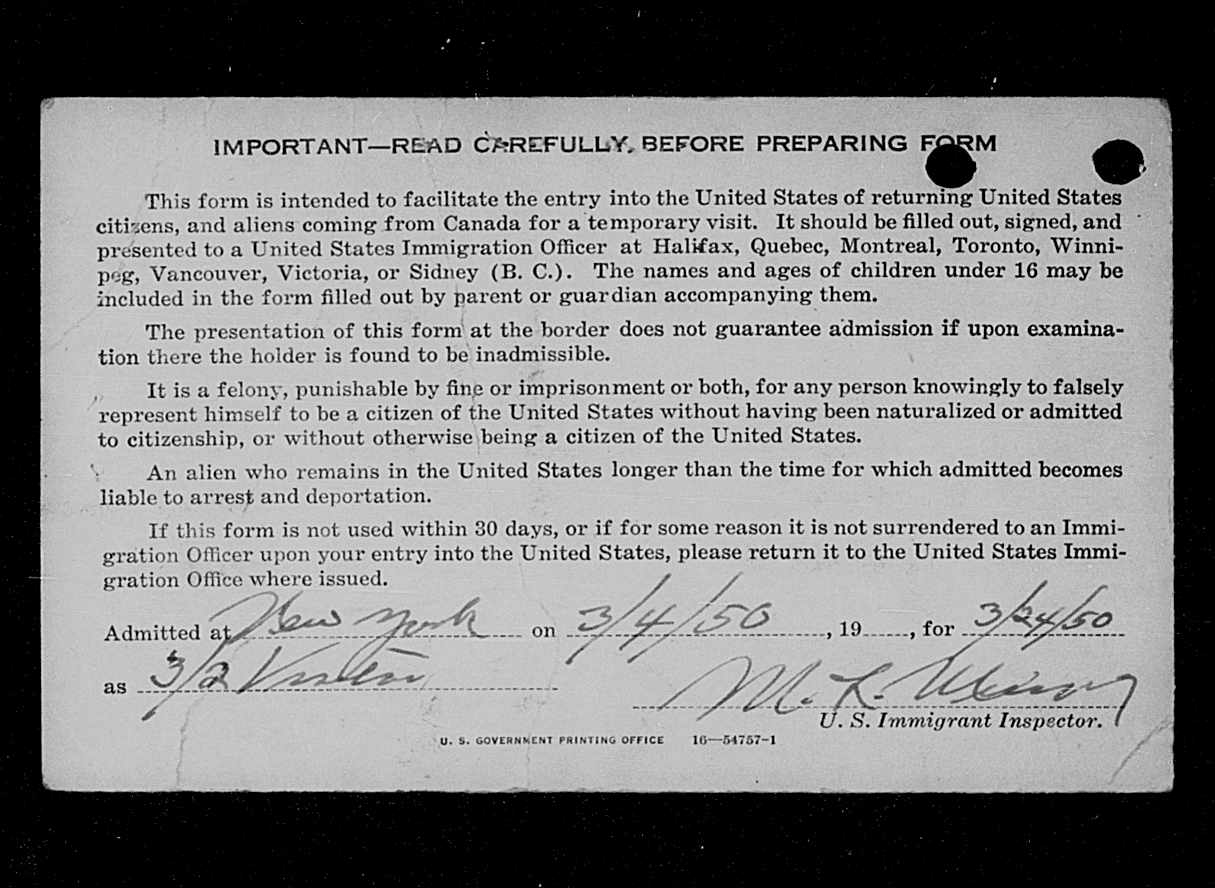 IMPORTANT—READ CAREFULLY, BEFORE PREPARING FORM
This form is intended to facilitate the entry into the United States of returning United States
citizens, and aliens coming from Canada for a temporary visit. It should be filled out, signed, and
presented to a United States Immigration Officer at Halifax, Quebec, Montreal, Toronto, Winni-
peg, Vancouver, Victoria, or Sidney (B. C.). The names and ages of children under 16 may be
included in the form filled out by parent or guardian accompanying them.
The presentation of this form at the border does not guarantee admission if upon examina-
tion there the holder is found to be inadmissible.
It is a felony, punishable by fine or imprisonment or both, for any person knowingly to falsely
represent himself to be a citizen of the United States without having been naturalized or admitted
to citizenship, or without otherwise being a citizen of the United States.
An alien who remains in the United States longer than the time for which admitted becomes
liable to arrest and deportation.
If this form is not used within 30 days, or if for some reason it is not surrendered to an Immi-
gration Officer upon your entry into the United States, please return it to the United States Immi-
gration Office where issued.
Admitted at New York on 3/4/50, 19, for 3/24/50
as 3/2 Visitor
M. L.
U. S. Immigrant Inspector.
U. S. GOVERNMENT PRINTING OFFICE 16—54757-1